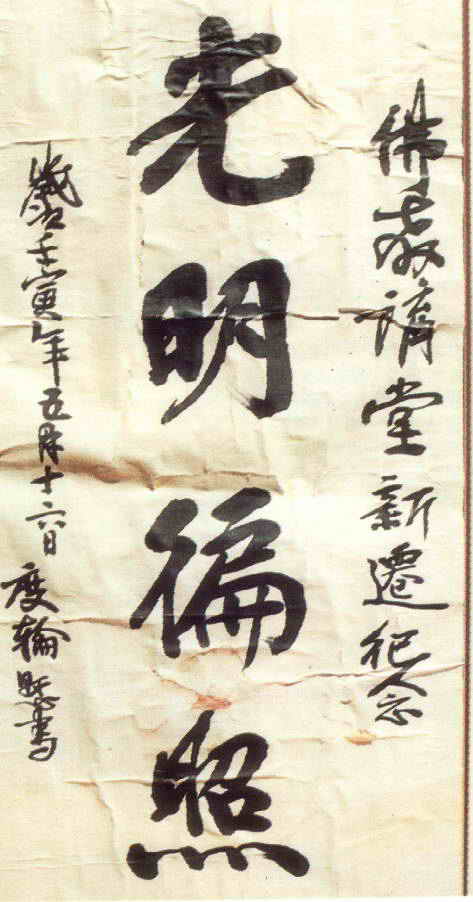 佛教講堂新遷紀念
光明徧照
歲次壬寅年五月十六日 度輪書